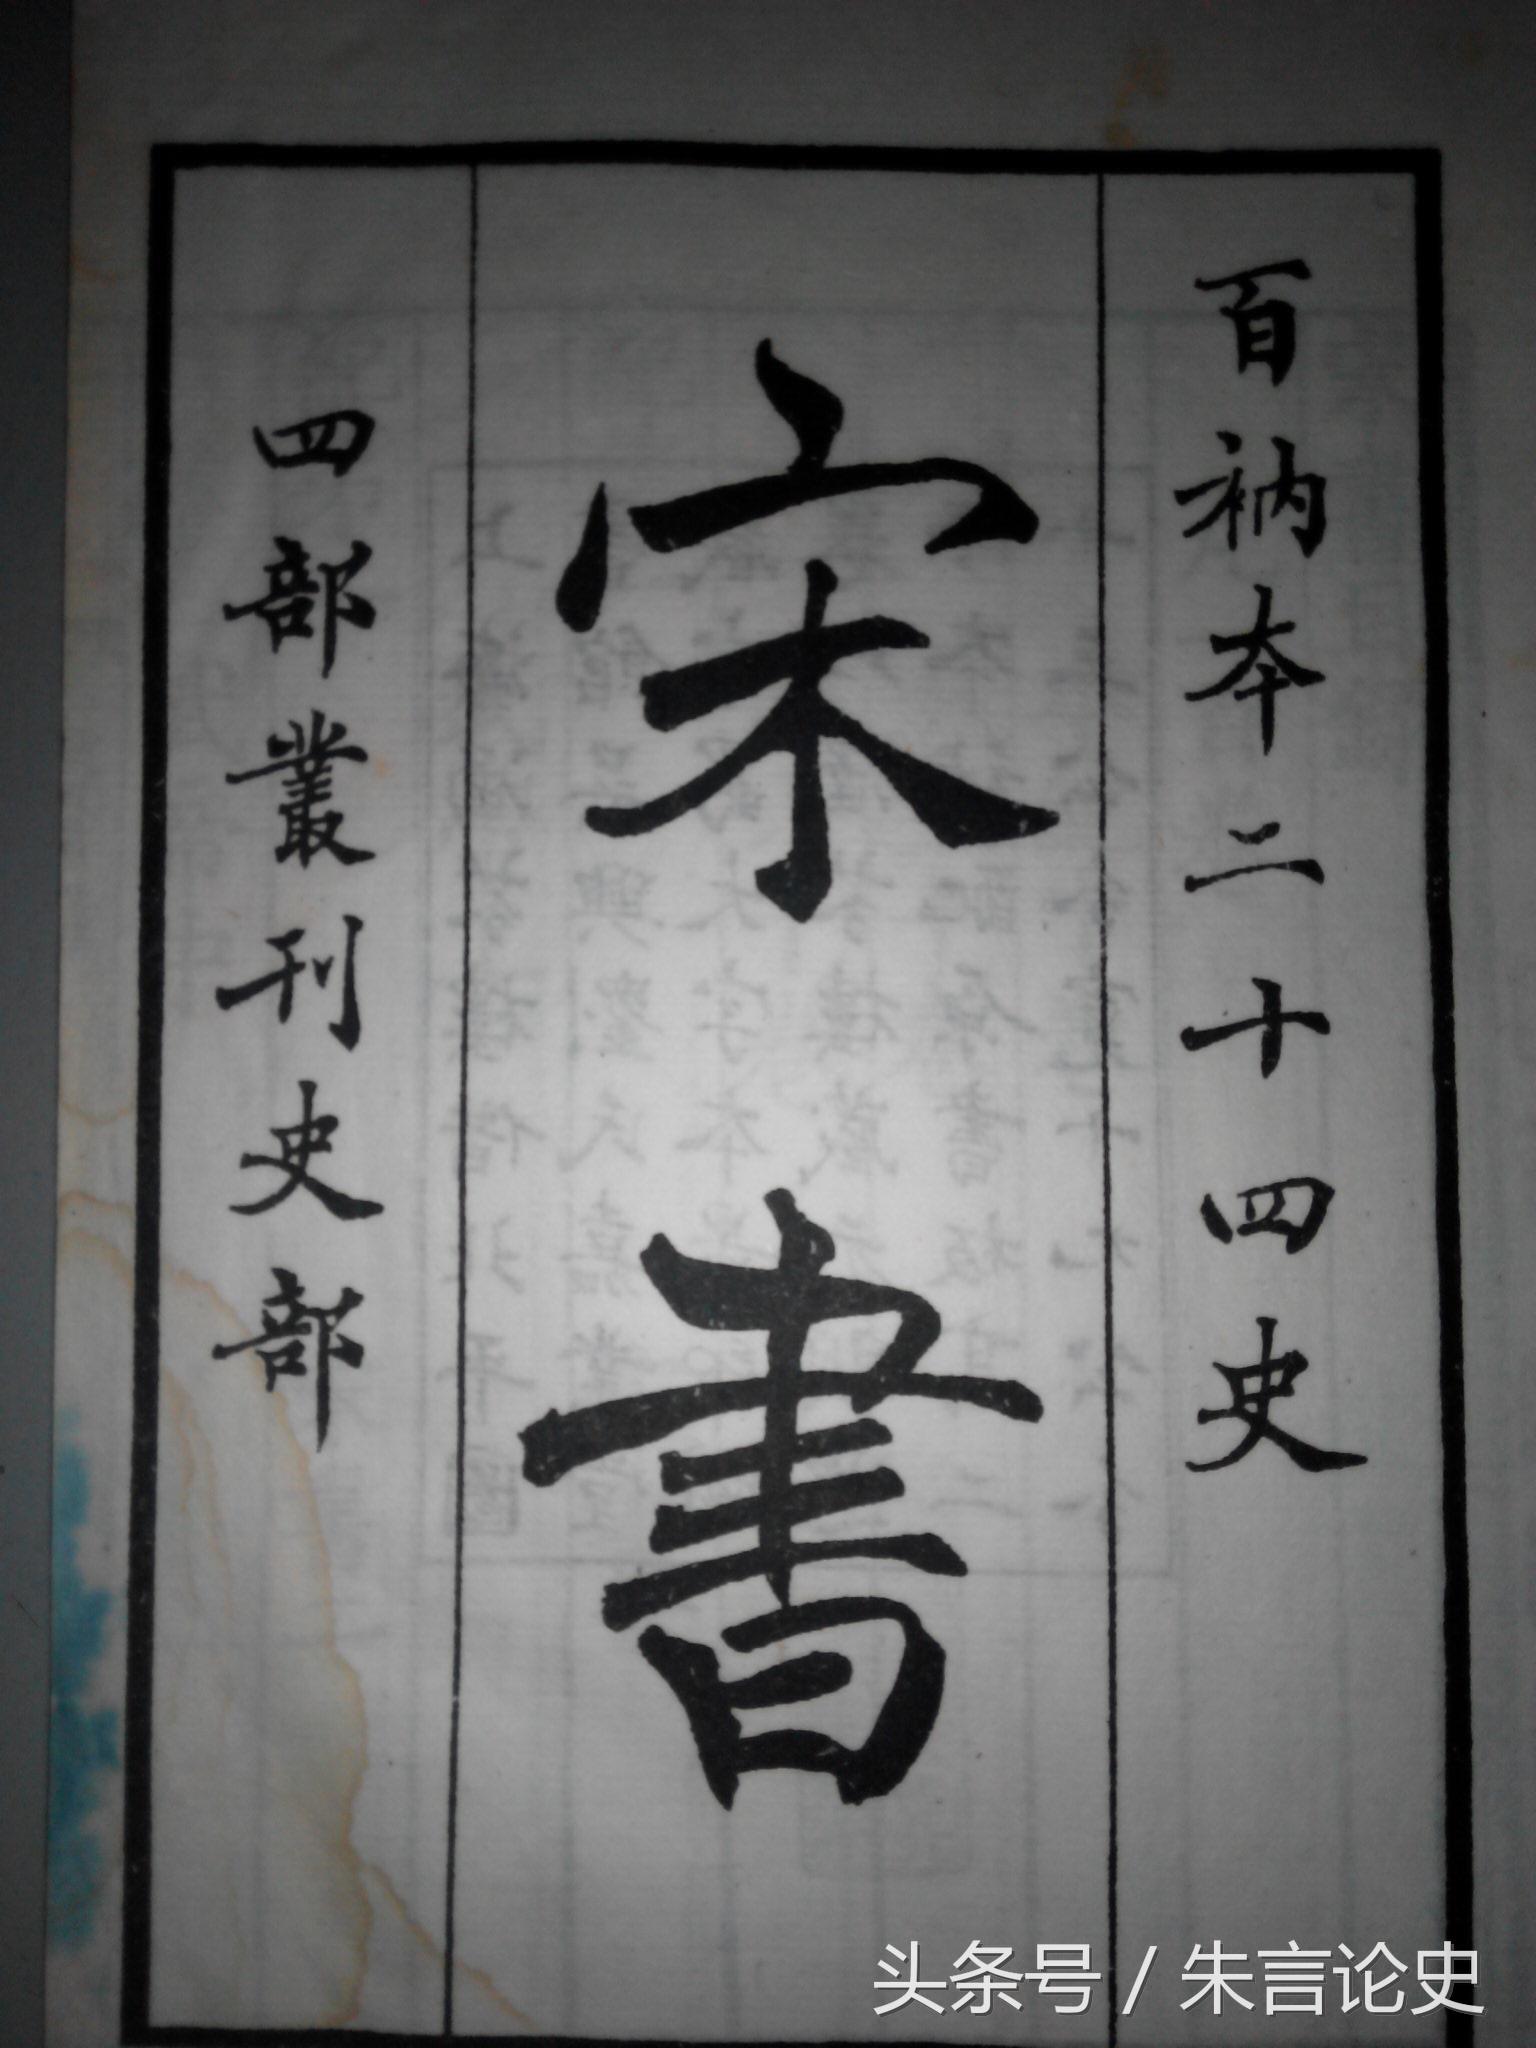 百衲本二十四史
宋書
四部叢刊史部
头条号 / 朱言论史